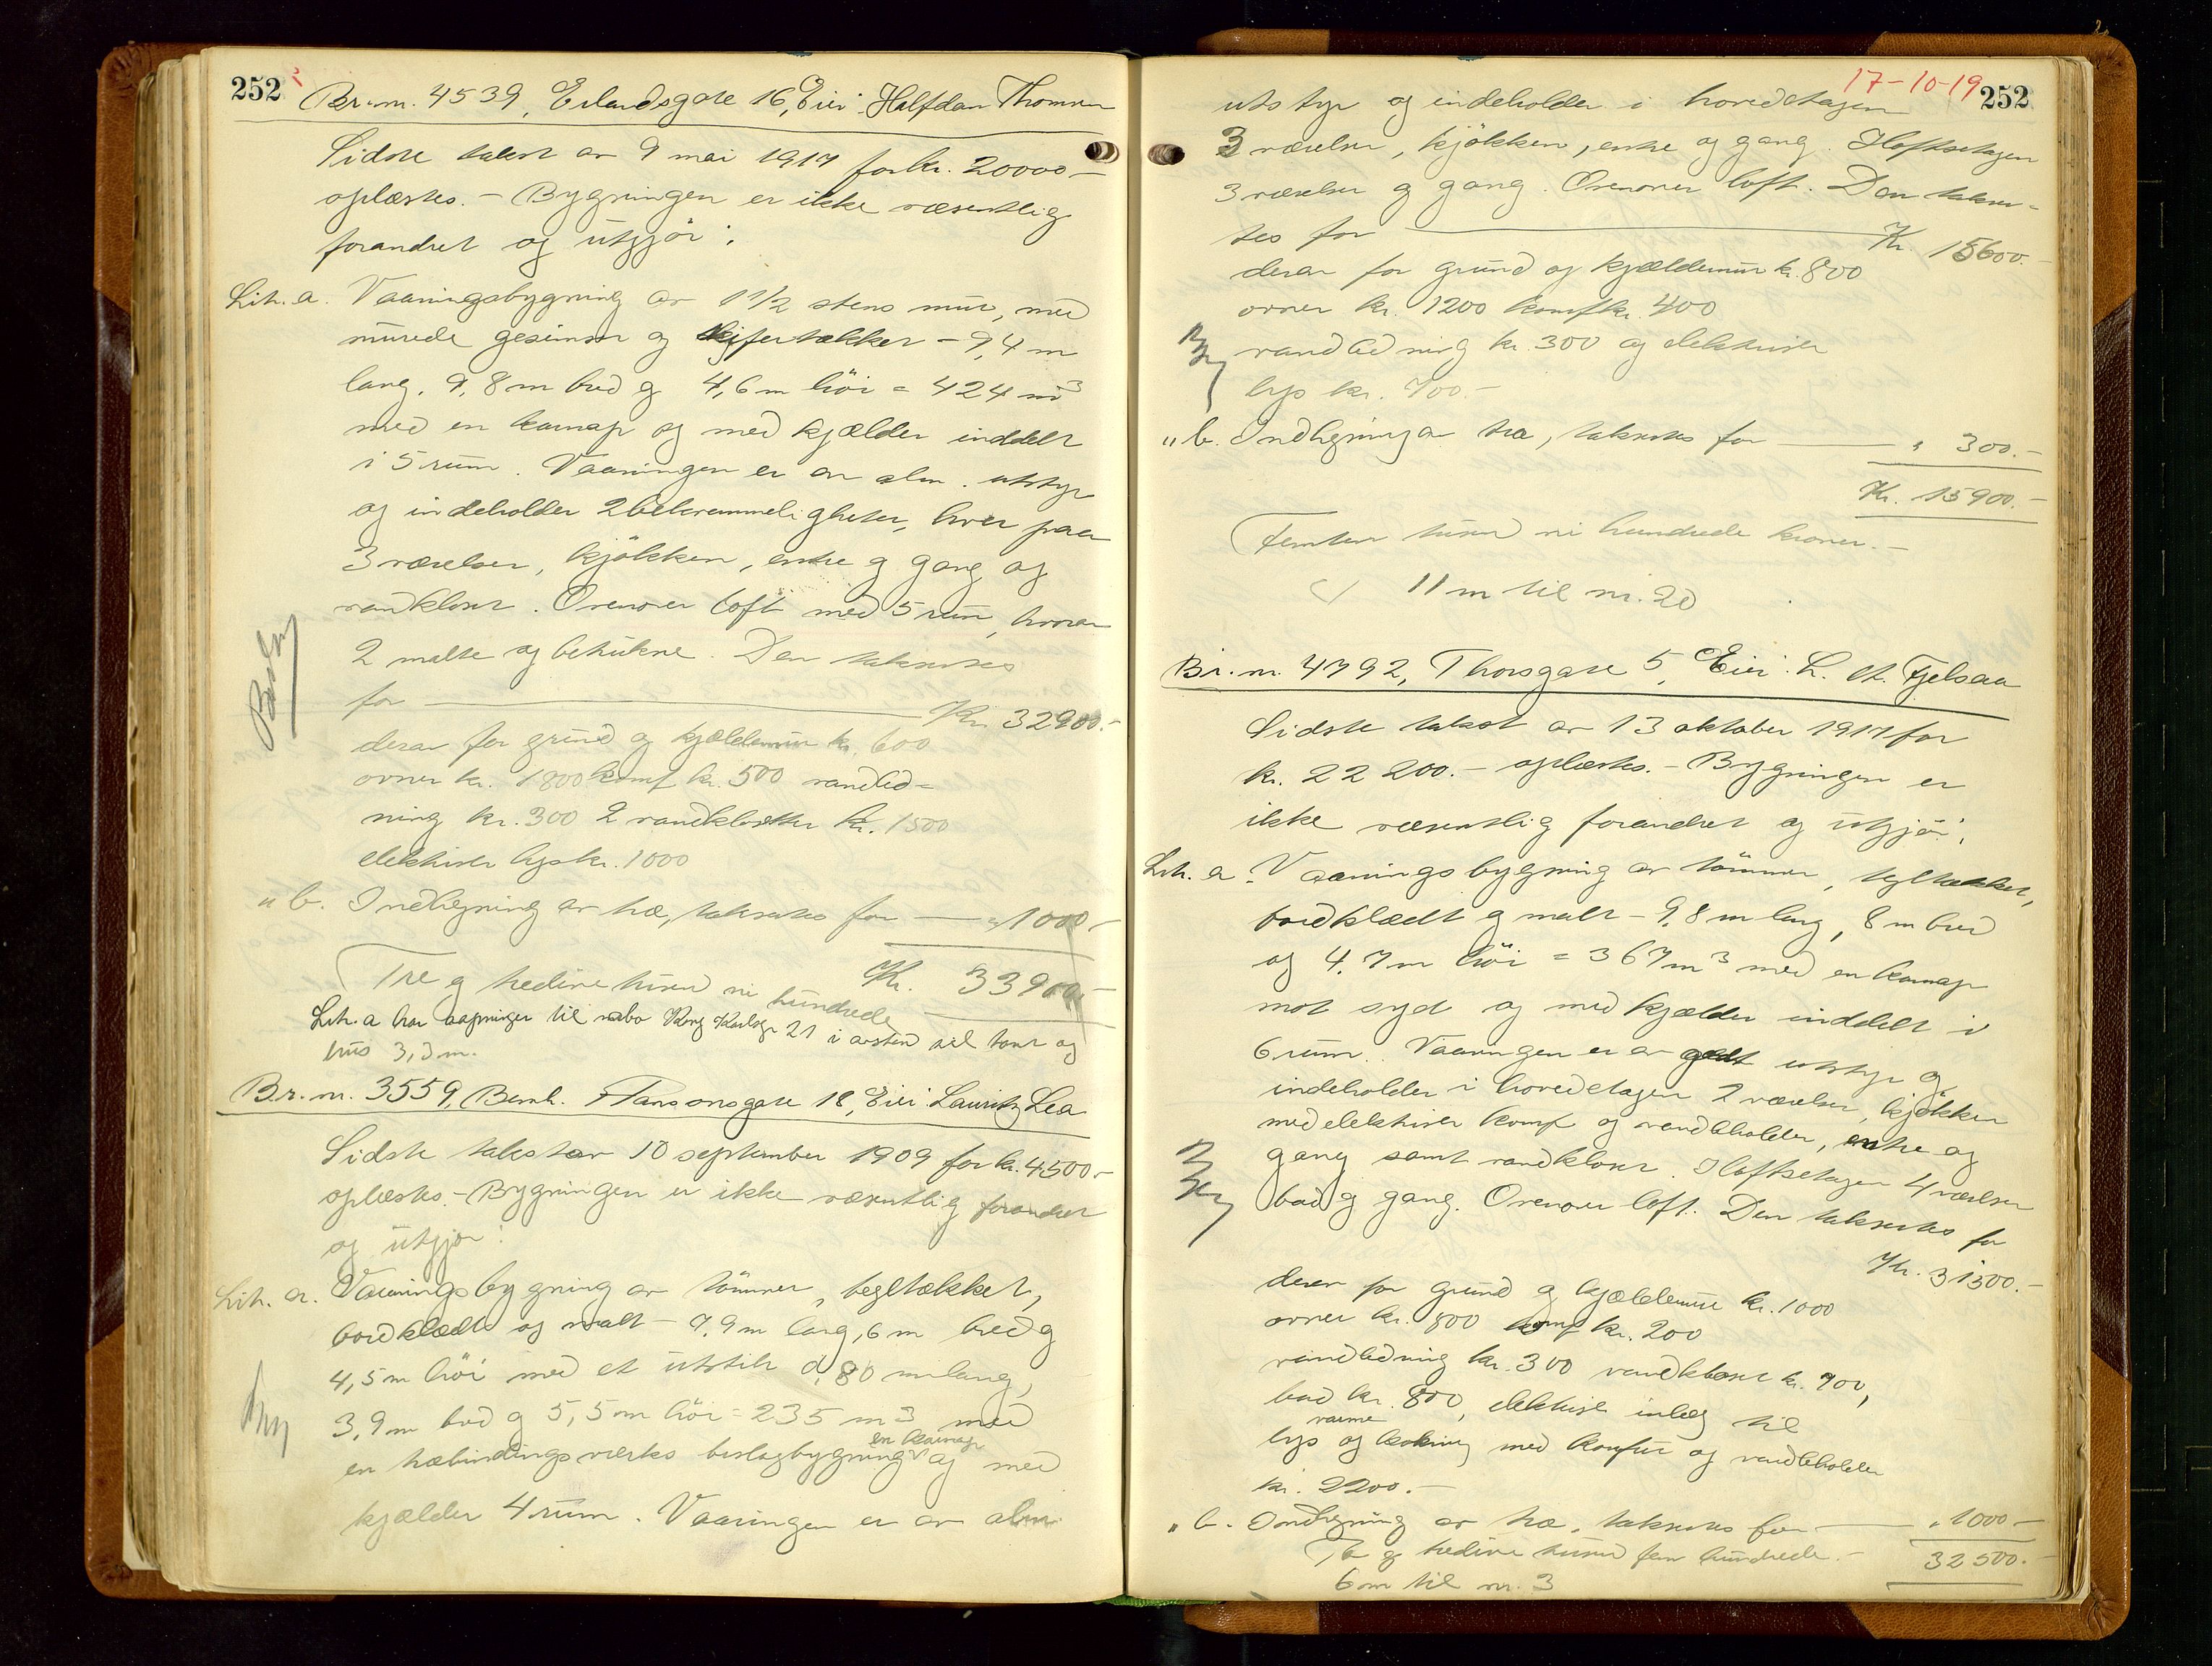 252
Br.nr. 4539, Erlandsgate 16, Eier: Halfdan Thomsen
Sidste takst av 9 mai 1917 for kr. 20000,-
oplæstes. - Bygningen er ikke væsentlig
forandret og utgjör:
Litr. a. Vaaningsbygning av 1 1/2 stens mur, med
murede gesimser og skifertækket - 9,4 m
lang, 9,8 m bred og 4,6 m höi = 424 m3
med en karnap og med kjælder inddelt
i 5 rum. Vaaningen er av alm. utstyr
og indeholder 2 bekvemmeligheter, hver paa
3 værelser, kjökken, entre og gang og
vandkloset. Ovenover loft med 5 rum, hvorav
2 malte og betrukne. Den takseres
for Kr. 32900.-
derav for grund og kjældermur kr. 600
ovner kr. 1800 komf kr. 500 vandled=
ning kr. 300 2 vandklosetter kr. 1500
elektrisk lys kr. 1000
" b. Indhegning av træ, takseres for " 1000.-
Kr. 33900.-
Tre og tredive tusen ni hundrede
Litr. a har aapninger til nabo Kong Karlsgt 21 i avstand til tomt og
hus 3,0 m.
Br.nr. 3559, Bernh. Hansonsgate 18, Eier: Lauritz Lea
Sidste takst av 10 september 1909 for kr. 4500.-
oplæstes. - Bygningen er ikke væsentlig forandret
og utgjör:
Litr. a. Vaaningsbygning av tömmer, tegltækket,
bordklædt og malt - 7,9 m lang, 6 m bred og
4,5 m höi med et utstik 0,80 m lang,
3,9 m bred og 5,5 m höi = 235 m3 med
en træbindingsverks bislagbygning og med
en karnap
kjælder 4 rum. Vaaningen er av alm.
17-10-19
252
utstyr og indeholder i hovedetagen
3 værelser, kjökken, entre og gang. I loftsetagen
3 værelser og gang. Ovenover loft. Den takse=
res for Kr. 15600.-
derav for grund og kjældermur kr. 800
ovner kr. 1200 komf kr. 400
vandledning kr. 300 og elektrisk
lys kr. 700.-
" b. Indhegning av træ, takseres for " 300.-
Kr. 15900.-
Femten tusen ni hundrede kroner.-
11 m til nr. 20
Br.nr. 4792, Thorsgate 5, Eier: L. A. Fjelsaa
Sidste takst av 13 oktober 1917 for
kr. 22200.- oplæstes. - Bygningen er
ikke væsentlig forandret og utgjör:
Litr. a. Vaaningsbygning av tömmer, tegltækket,
bordklædt og malt - 9,8 m lang, 8 m bred
og 4,7 m höi = 367 m3 med en karnap
mot syd og med kjælder inddelt i
6 rum. Vaaningen er av godt utstyr og
indeholder i hovedetagen 2 værelser, kjökken
med elektrisk komf og vandbeholder, entre og
gang samt vandklosit. I loftsetagen 4 værelser
bad og gang. Ovenover loft. Den takseres for
Kr. 31500.-
derav for grund og kjældermur kr. 1000
ovner kr. 800 komf kr. 200
vandledning kr. 300 vandklosit kr. 700,
bad kr. 800, elektrisk inlæg til
varme
lys og kokning med komfur og vandbeholder
kr. 2200.-
" b. Indhegning av træ, takseres for " 1000.-
To og tredive tusen fem hundrede.- 32500.-
6 m til nr. 3